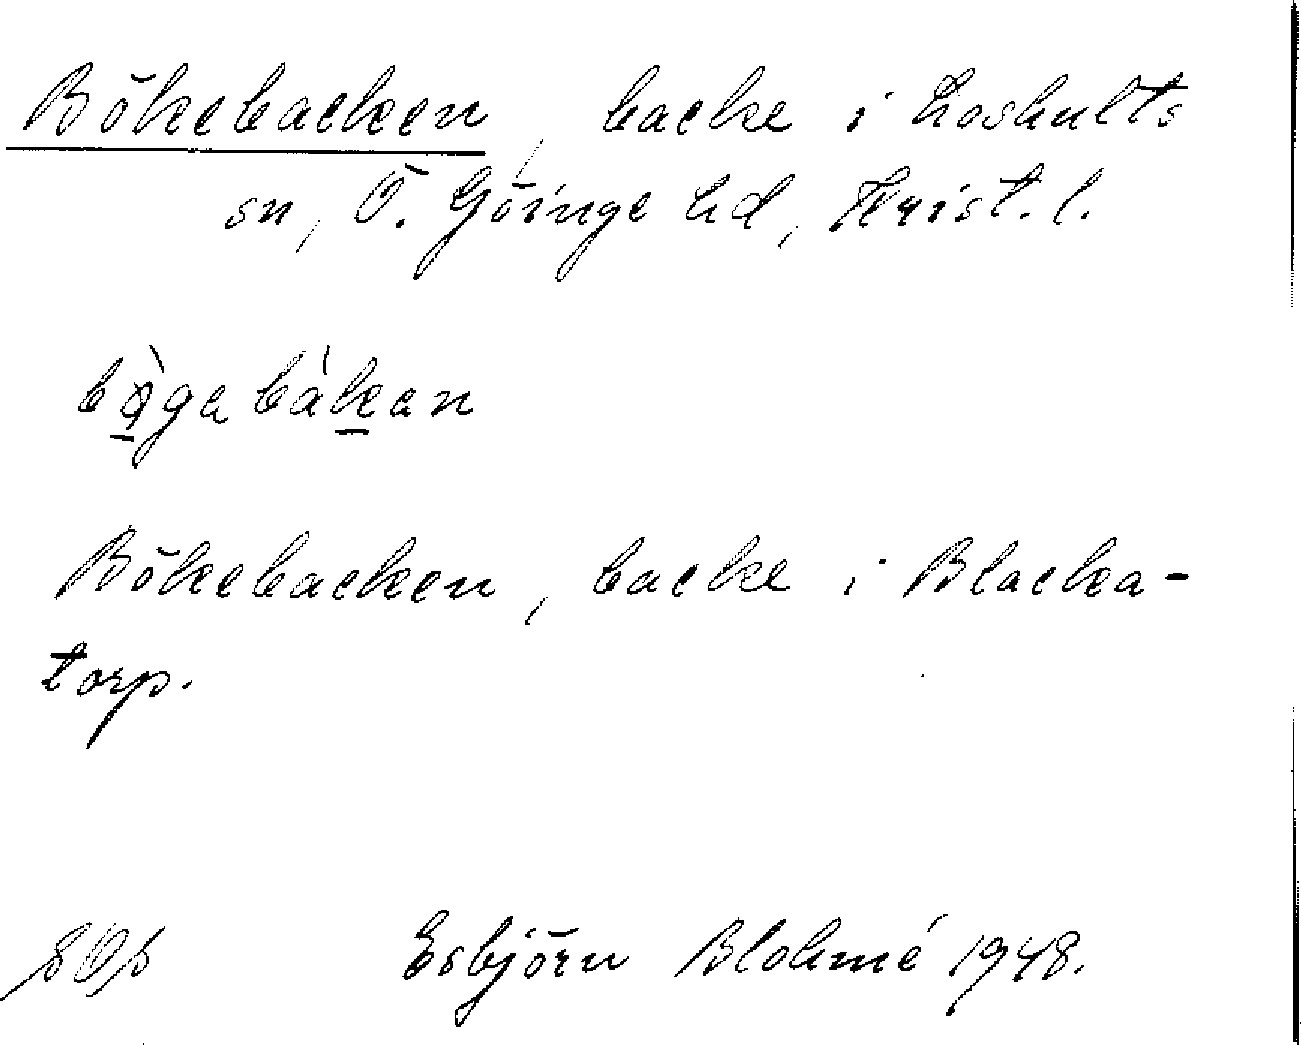 Bökebacken, backe i Loshults
sn, Ö. Göinge hd, Krist. l.
Bökebacken, backe i Blacka-
torp.
Esbjörn Blohmé 1948.